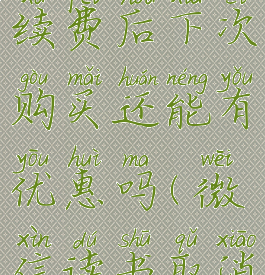 续费后下次
gòu mǎi huán néng yǒu
购买还能有
yōu huì ma wēi
优惠吗(微
xìn dú shū qǔ xiāo
信读书取消